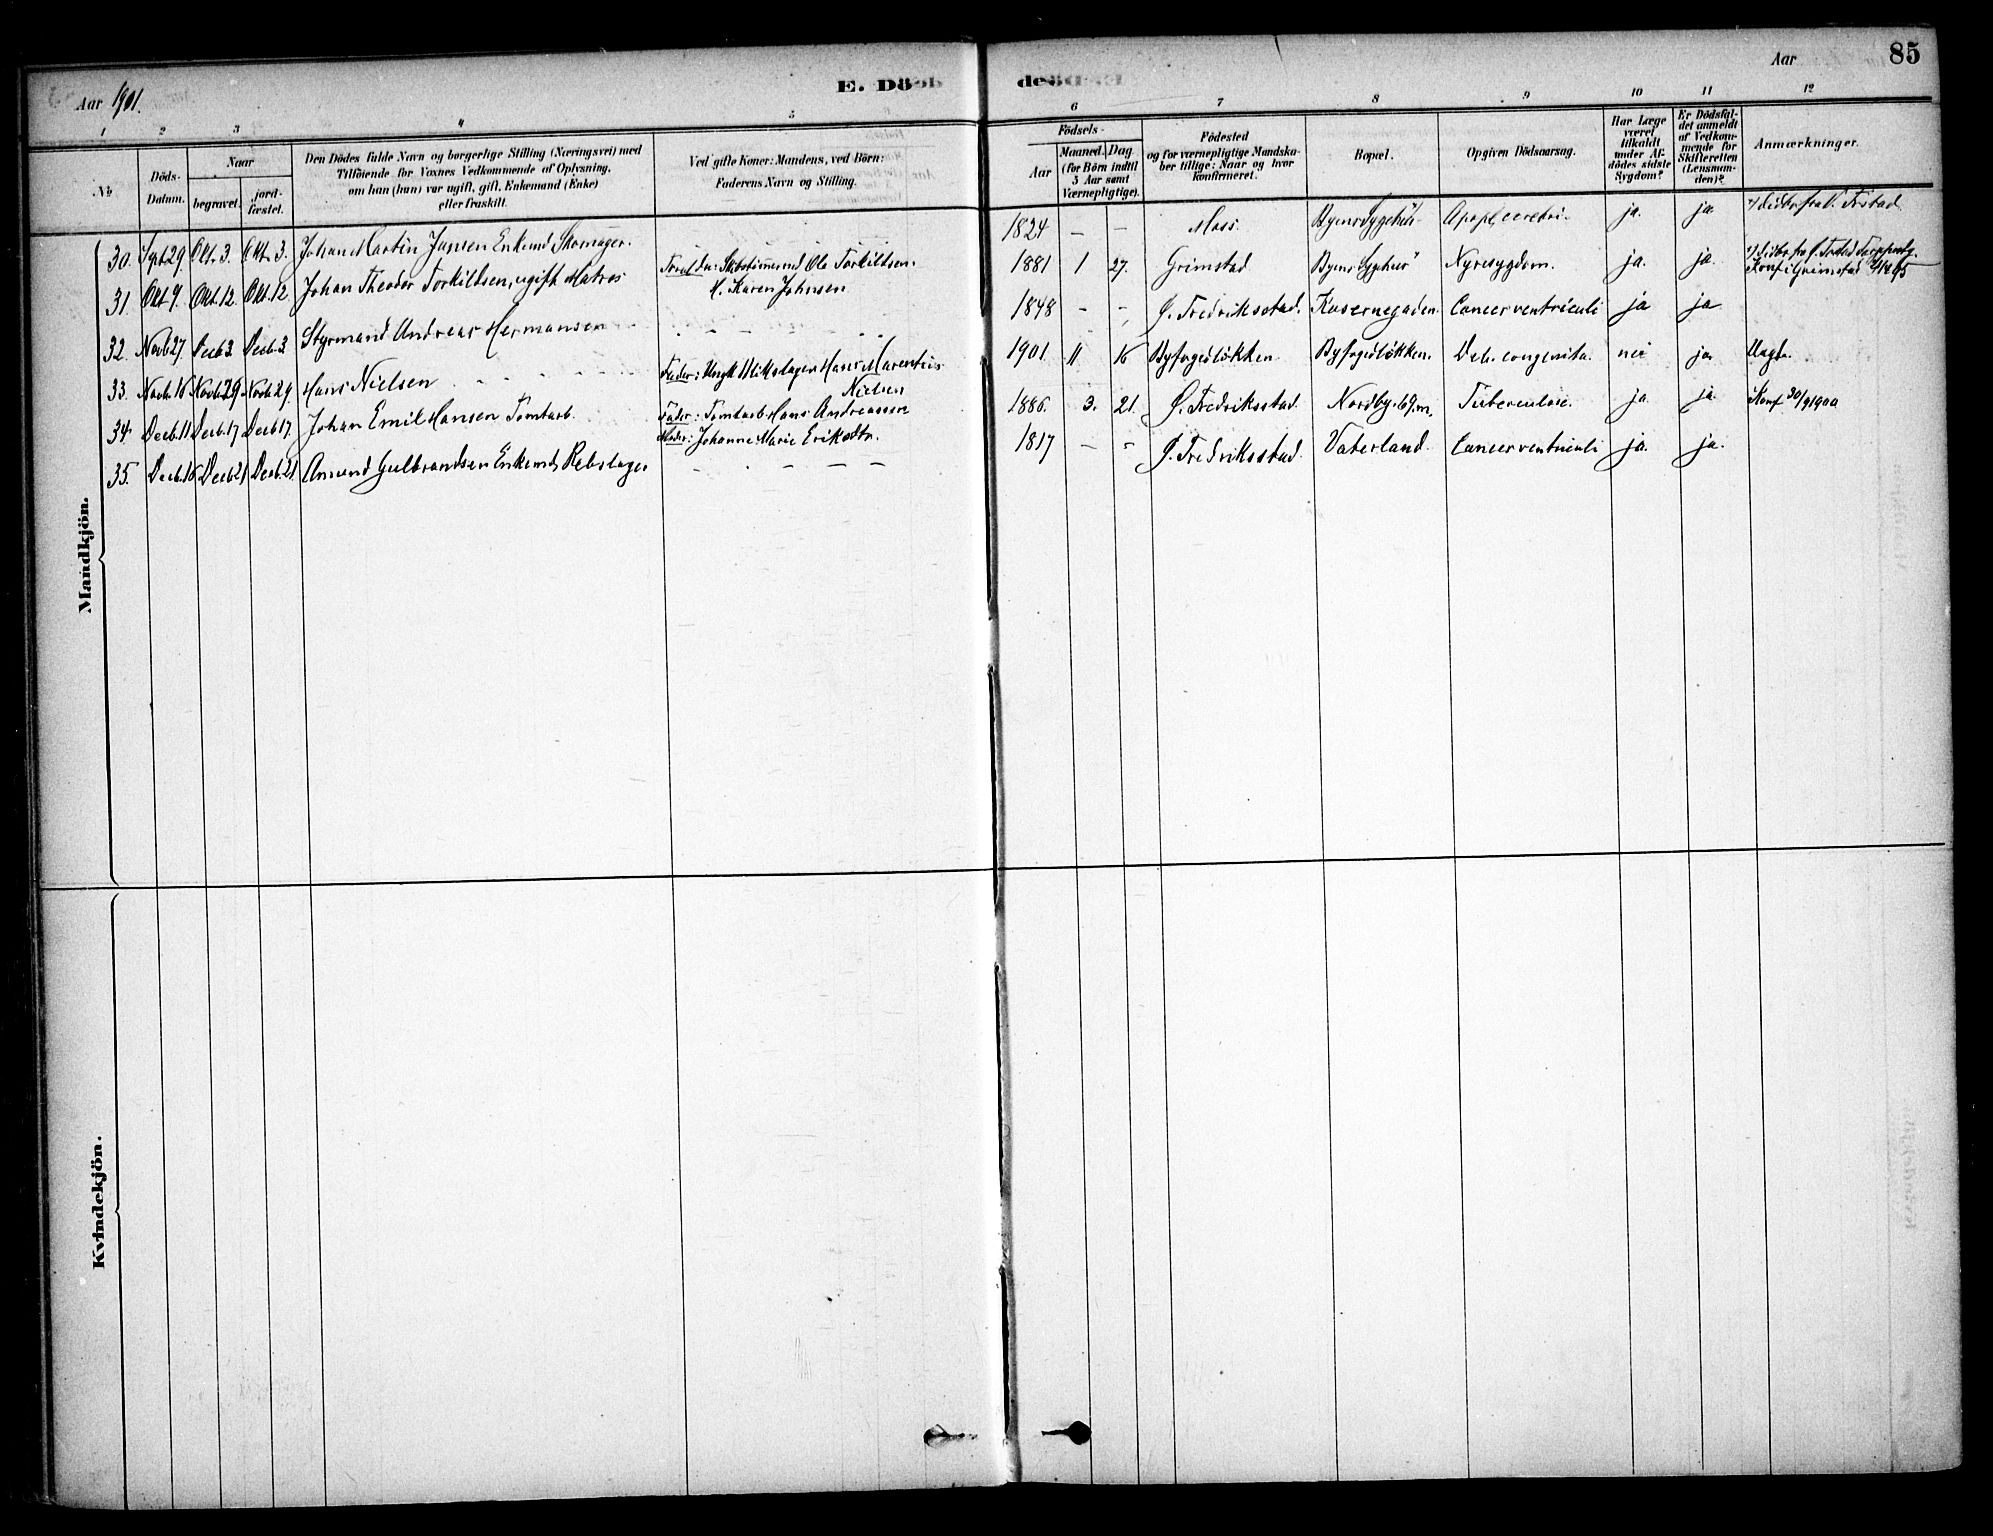 85
Aar 1901.
E. Dö
de
Aar
1 2 3 4 5 6 7 8 9 10 11 12
No
Döds-Datum.
Naar
begravet.
jord-fæstet.
Den Dödes fulde Navn og borgerlige Stilling (Næringsvei) med
Tilföiende for Voxnes Vedkommende af Oplysning,
om han (hun) var ugift, gift, Enkemand (Enke)
eller fraskilt.
Ved gifte Koner: Mandens, ved Börn:
Faderens Navn og Stilling.
Födsels-
Aar
Maaned. Dag
(for Börn indtil
5 Aar samt
Værnepligtige).
Födested
og for værnepligtige Mandska-
ber tillige: Naar og hvor
konfirmeret.
Bopæl.
Opgiven Dödsaarsag.
Har Læge
været
tilkaldt
under Af-
dödes sidste
Sygdom?
Er Dödsfal-
det anmeldt
af Vedkom-
mende for
Skifteretten
(Lensman-
den)?
Anmærkninger.
Mandkjön.
30. Sept 29. Okt. 3. Okt. 3. Johan Martin Jansen Enkemd Skomager. 1824 – – Moss. Byens Sygehus Apopl. cerebri ja. ja
31. Okt. 9. Okt. 12. Okt. 12. Johan Theodor Torkildsen, ugift Matros Ole Torkildsen. 1881 1 27. Grimstad Byens Sygehus Nyresygdom. ja. ja.
M. Karen Johnsen Konf i Grimstad
32. Novb 27. Decb 3. Decb. 3. Styrmand Andreas Hermansen 1848 - - Ø. Fredriksstad. Kasernegaden. Cancer ventriculi ja ja
33. Novb. 16 Novb. 29 Novb. 29. Hans Nielsen Fader: Ungk Blikslager Hans Marentius 1901. 11 16 Byfogedløkken Byfogedløkken. Deb. congenita. nei ja. Uægte.
Nielsen
34. Decb. 11 Decb. 17 Decb 17. Johan Emil Hansen Tomtarb. Fader: Tomtarb Hans Andreassen 1886. 3. 21. Ø. Fredriksstad. Nordby Tuberculose. ja. ja. Konf 30/9 1900
Moder: Johanne Marie Eriksdtr.
35. Decb. 16 Decb 21 Decb. 21. Amund Gulbrandsen Enkemd, Rebslager - - - - 1817 – - Ø. Fredriksstad. Vaterland. Cancer ventriculi ja. ja.
Kvindekjön.